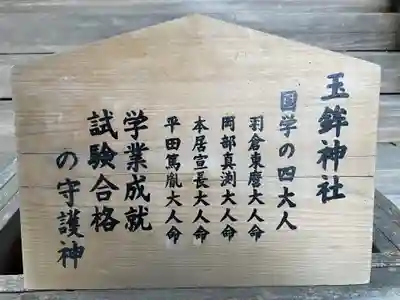 玉鉾神社
国学の四大人
羽倉東麿大人命
岡部真渕大人命
本居宣長大人命
平田篤胤大人命
学業成就
試験合格
の守護神